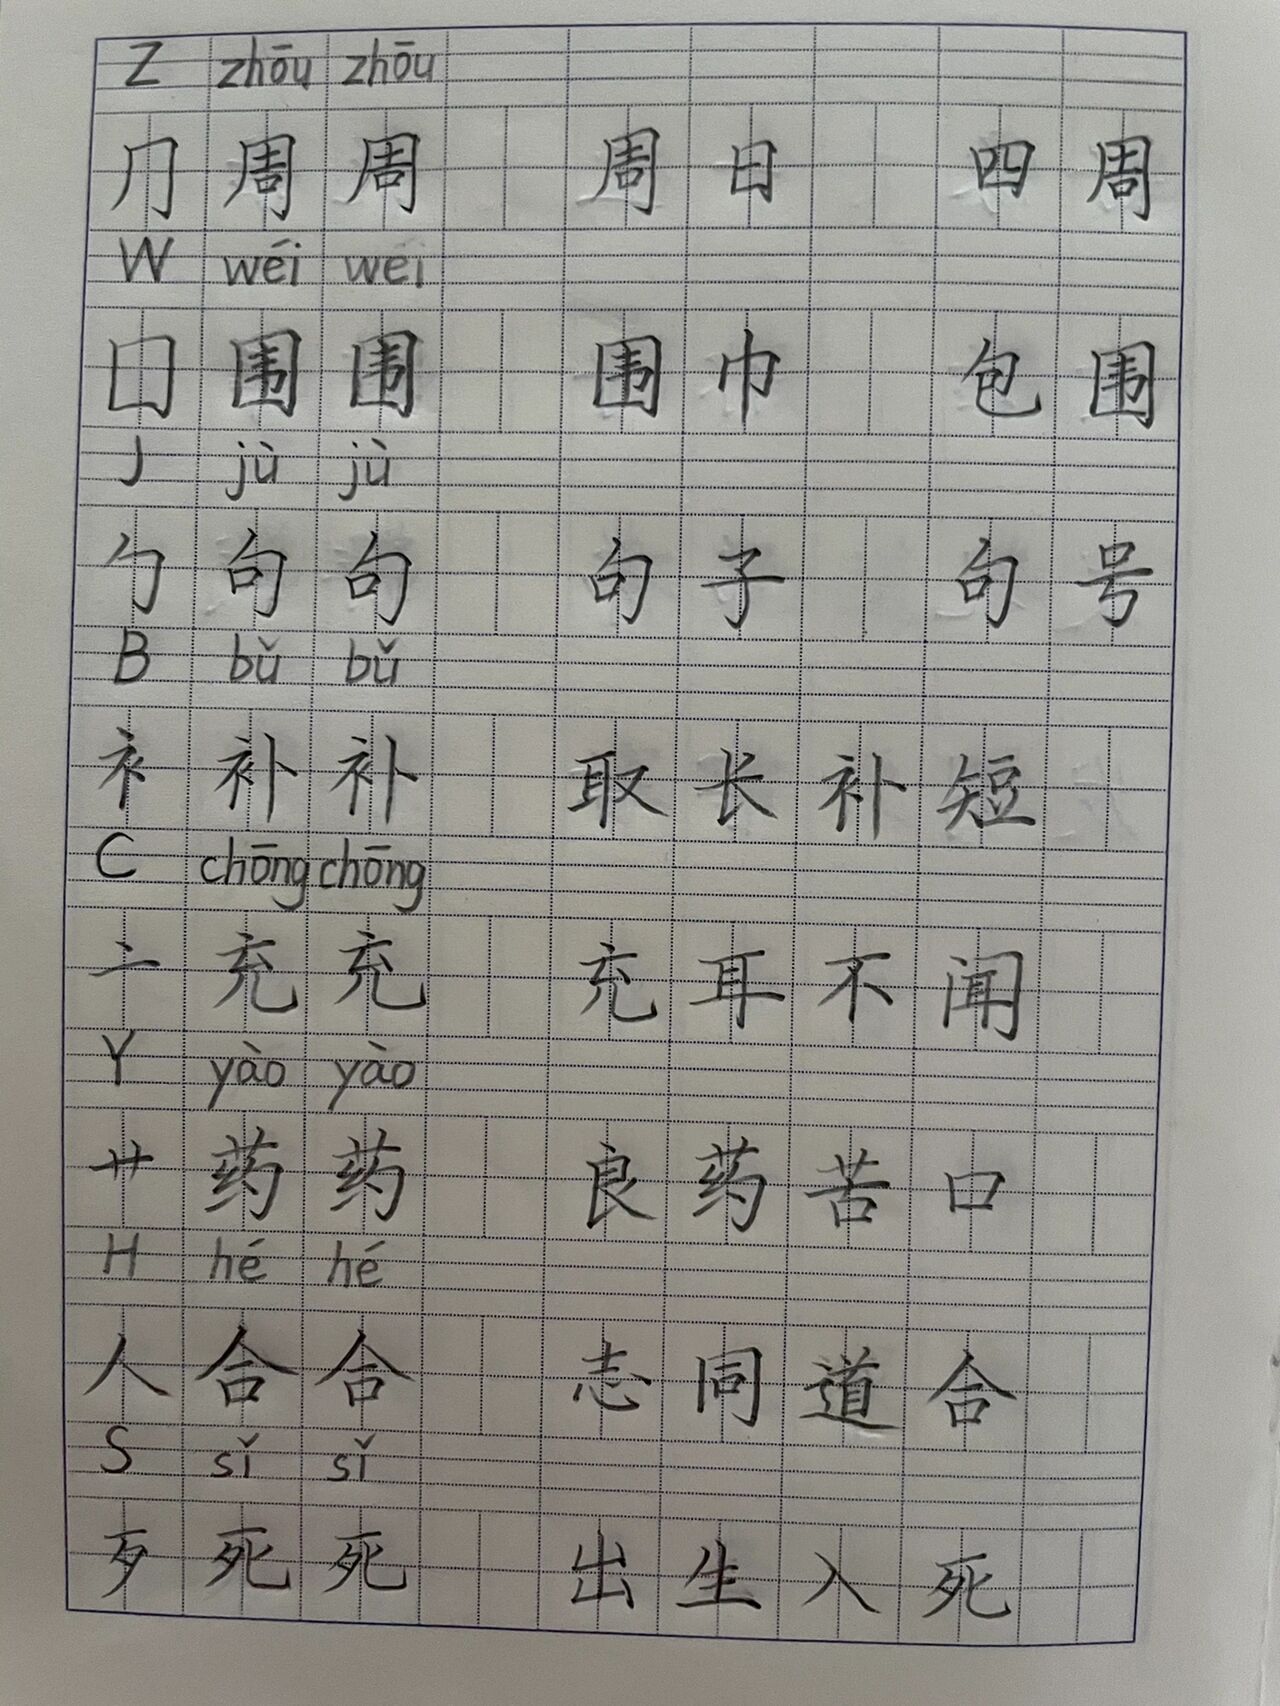 Z zhōu zhōu
⺆ 周 周 周 日 四 周
W wéi wéi
囗 围 围 围 巾 包 围
J jù jù
勹 句 句 句 子 句 号
B bǔ bǔ
衤 补 补 取 长 补 短
C chōng chōng
亠 充 充 充 耳 不 闻
Y yào yào
艹 药 药 良 药 苦 口
H hé hé
人 合 合 志 同 道 合
S sǐ sǐ
歹 死 死 出 生 入 死